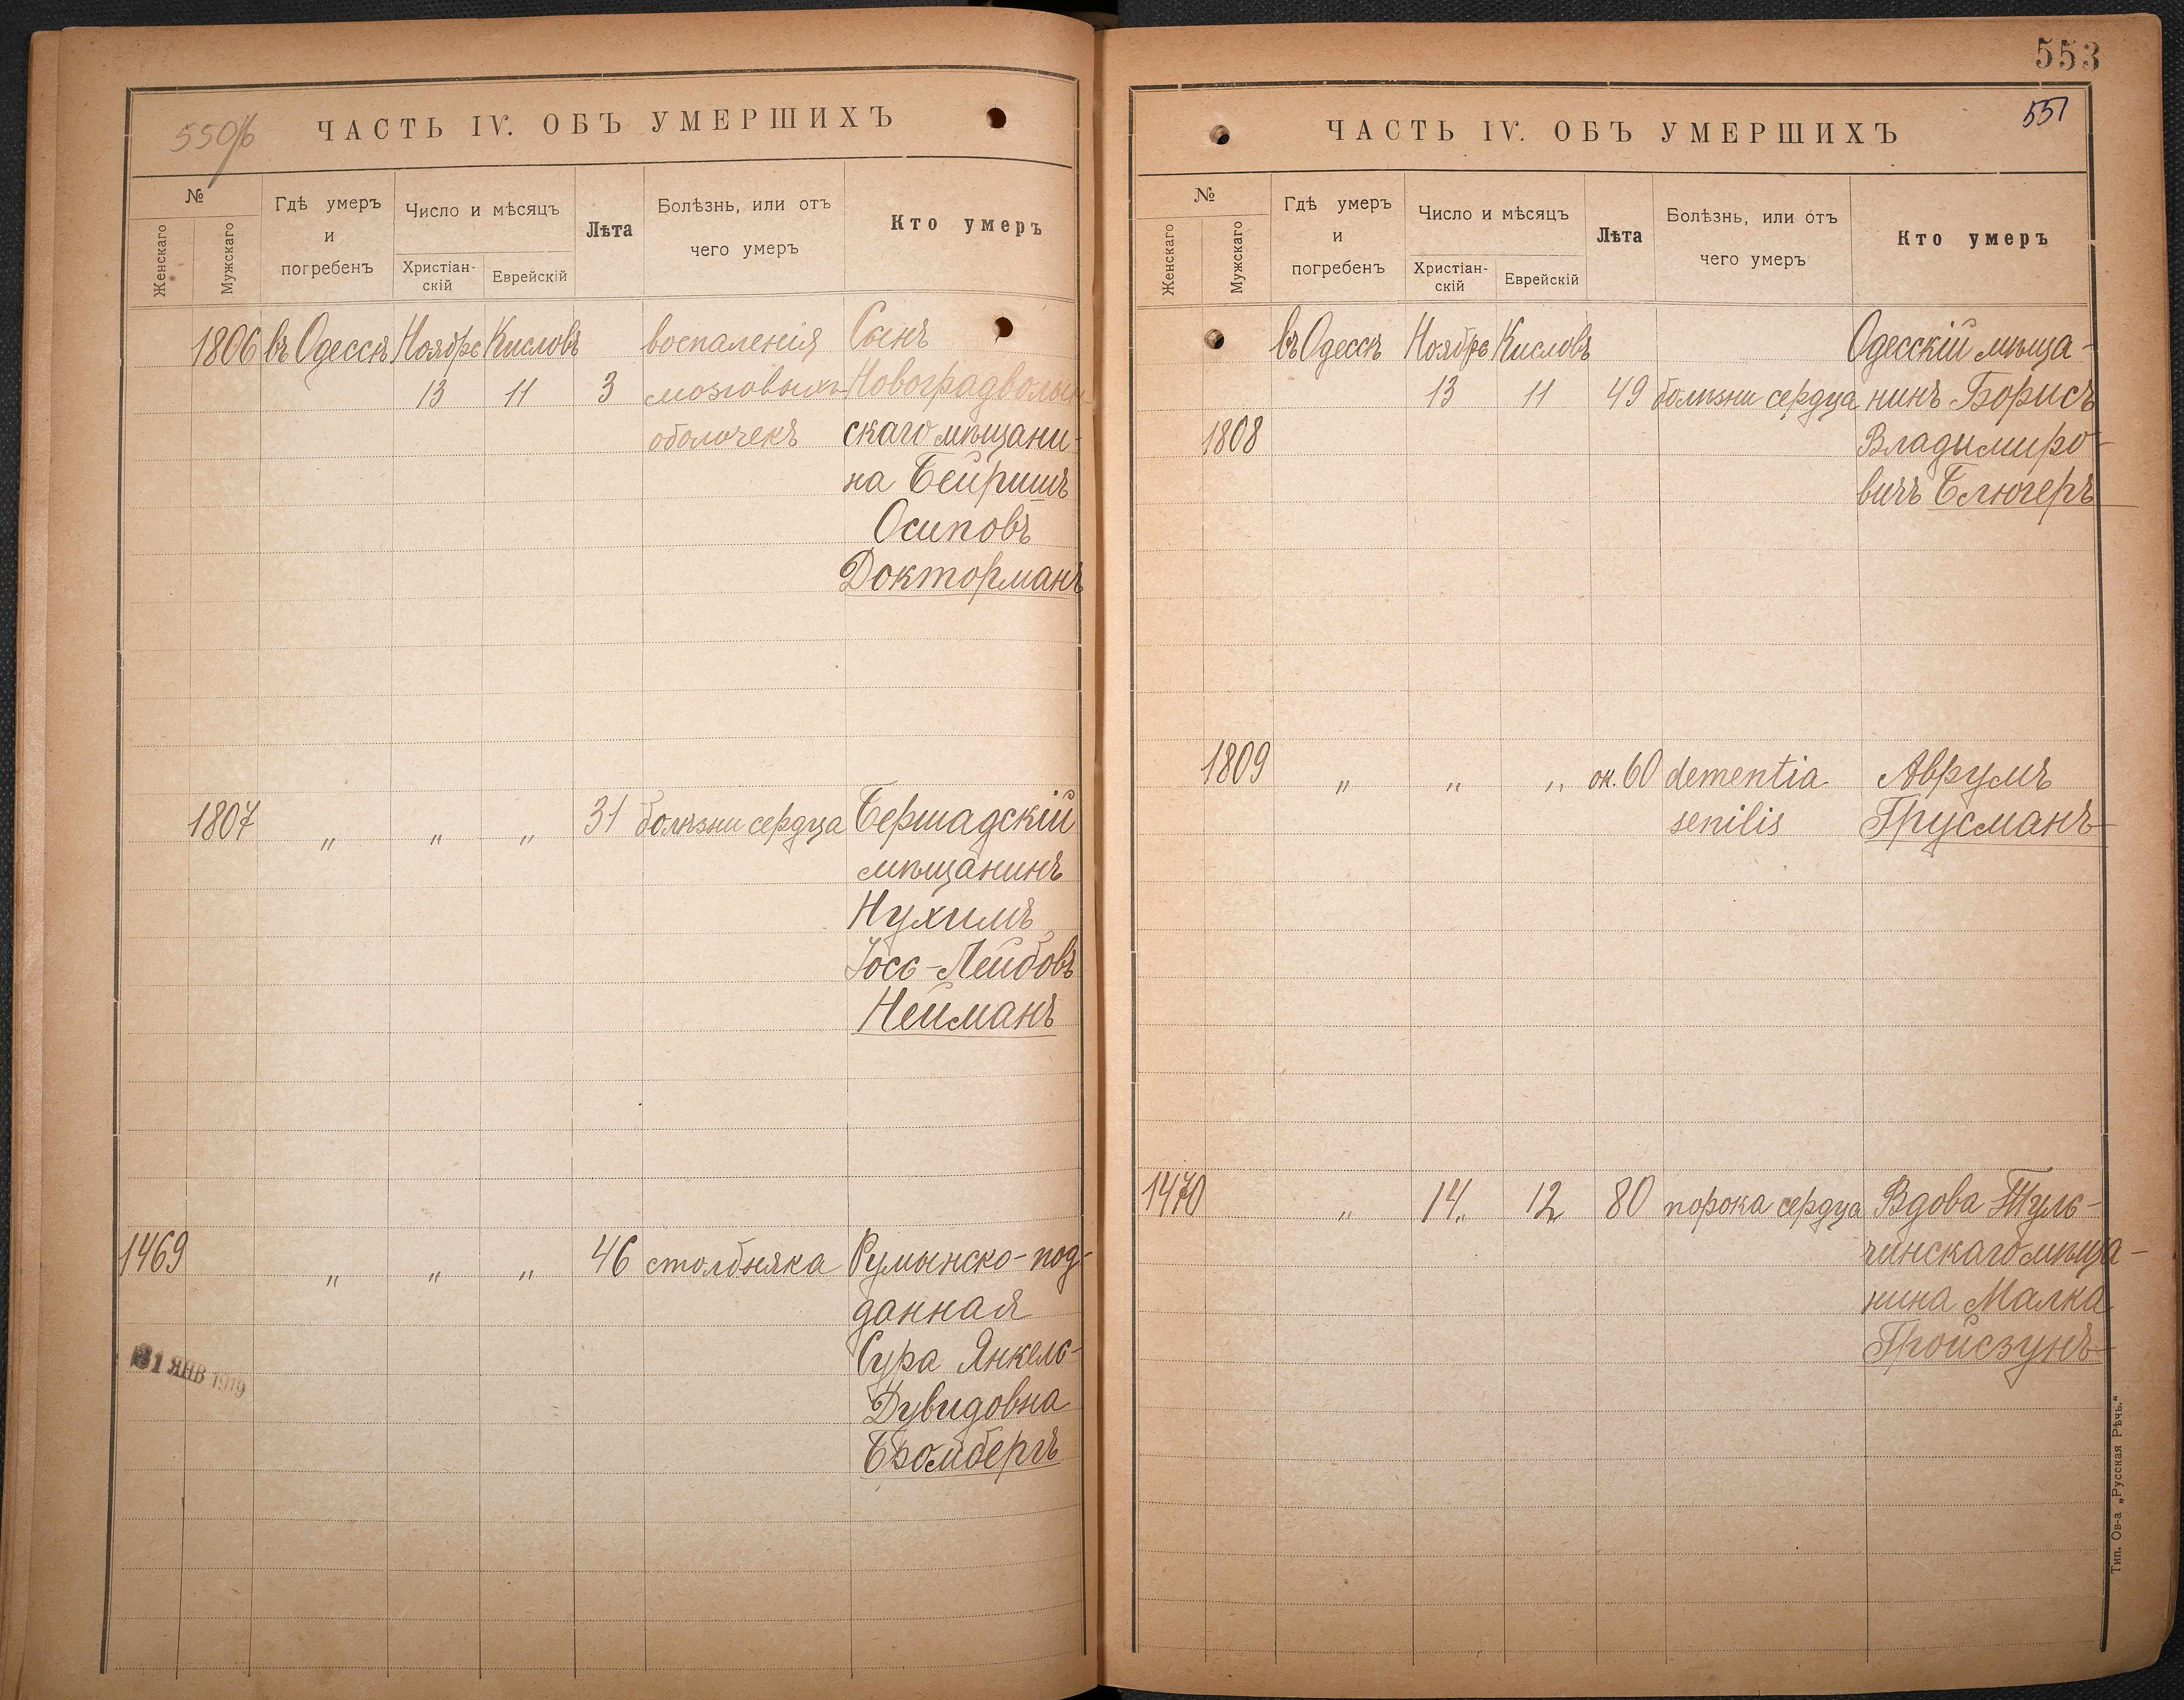 550/б
ЧАСТЬ IV. ОБЪ УМЕРШИХЪ
№
Женскаго
Мужскаго
Гдѣ умеръ
и
погребенъ
Число и мѣсяцъ
Христіан-
скій
Еврейскій
Лѣта
Болѣзнь, или отъ
чего умеръ
Кто умеръ
1806 въ Одессѣ Ноябрь Кисловъ воспаленія Сынъ
13 11 3 мозговыхъ Новоградволын
оболочекъ скаго мѣщани-
на Бейришъ
Осиповъ
Докторманъ
1807 „ „ „ 31 болѣзни сердца Бершадскій
мѣщанинъ
Нухимъ
Іось-Лейбовъ
Нейманъ
1469 „ „ „ 46 столбняка Румынско-под-
данная
Сура Янкель-
Дувидовна
Бромбергъ
31 ЯНВ 1919
553
551
ЧАСТЬ IV. ОБЪ УМЕРШИХЪ
№
Женскаго
Мужскаго
Гдѣ умеръ
и
погребенъ
Число и мѣсяцъ
Христіан-
скій
Еврейскій
Лѣта
Болѣзнь, или отъ
чего умеръ
Кто умеръ
въ Одессѣ Ноябрь Кисловъ Одесскій мѣща-
13 11 49 болѣзни сердца нинъ Борисъ
1808 Владимиро-
вичъ Блюгеръ
1809 „ „ „ ок. 60 dementia Аврумъ
senilis Грусманъ
1470 „ 14„ 12„ 80 порока сердца Вдова Туль-
чинскаго мѣща-
нина Малка
Гройсзунъ
Тип. Ов-а „Русская Рѣчь.“